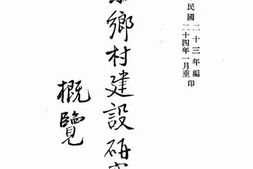 民國二十三年編印
二十四年一月重
鄉村建設研
概覽